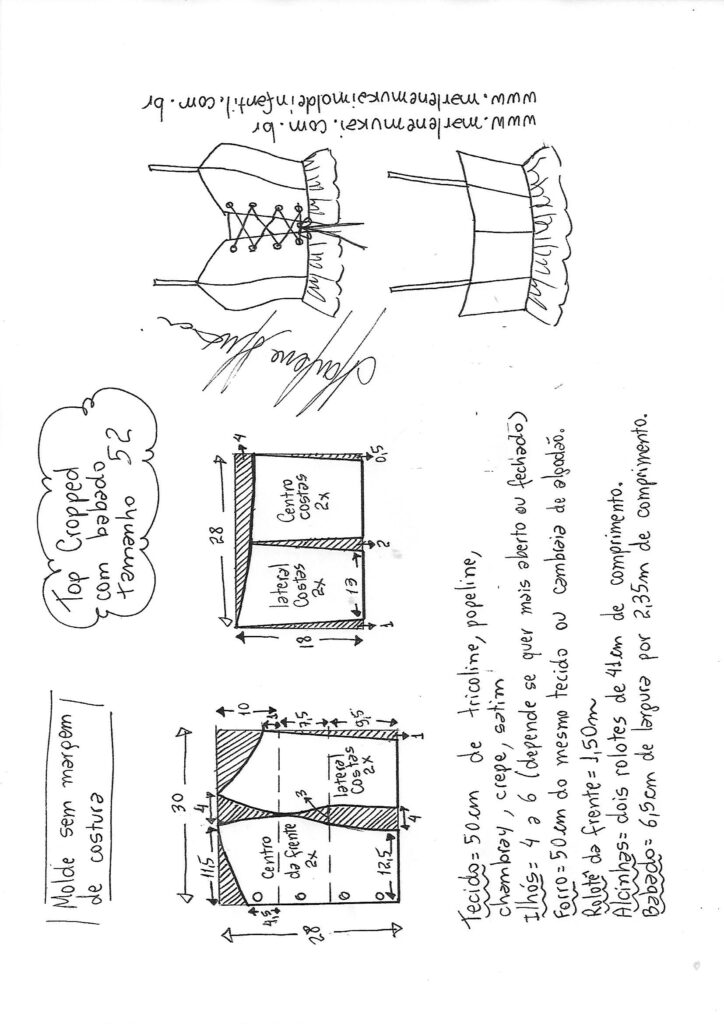 Molde sem margem
de costura
Top Cropped
com babado
tamanho 52
www.marlenemukai.com.br
www.marlenemukaimoldeinfantil.com.br
Marlene Mukai
30
11,5
4
10
1
7,5
9,5
1
4,5
28
3
4
12,5
Centro
da frente
2x
lateral
Costas
2x
28
4
18
lateral
Costas
2x
Centro
costas
2x
13
1
2
0,5
Tecido= 50cm de tricoline, popeline,
chambray, crepe, satim
Ilhós= 4 a 6 (depende se quer mais aberto ou fechado)
Forro= 50cm do mesmo tecido ou cambraia de algodão.
Rolotê da frente= 1,50m
Alcinhas= dois rolotes de 41cm de comprimento.
Babado= 6,5cm de largura por 2,35m de comprimento.